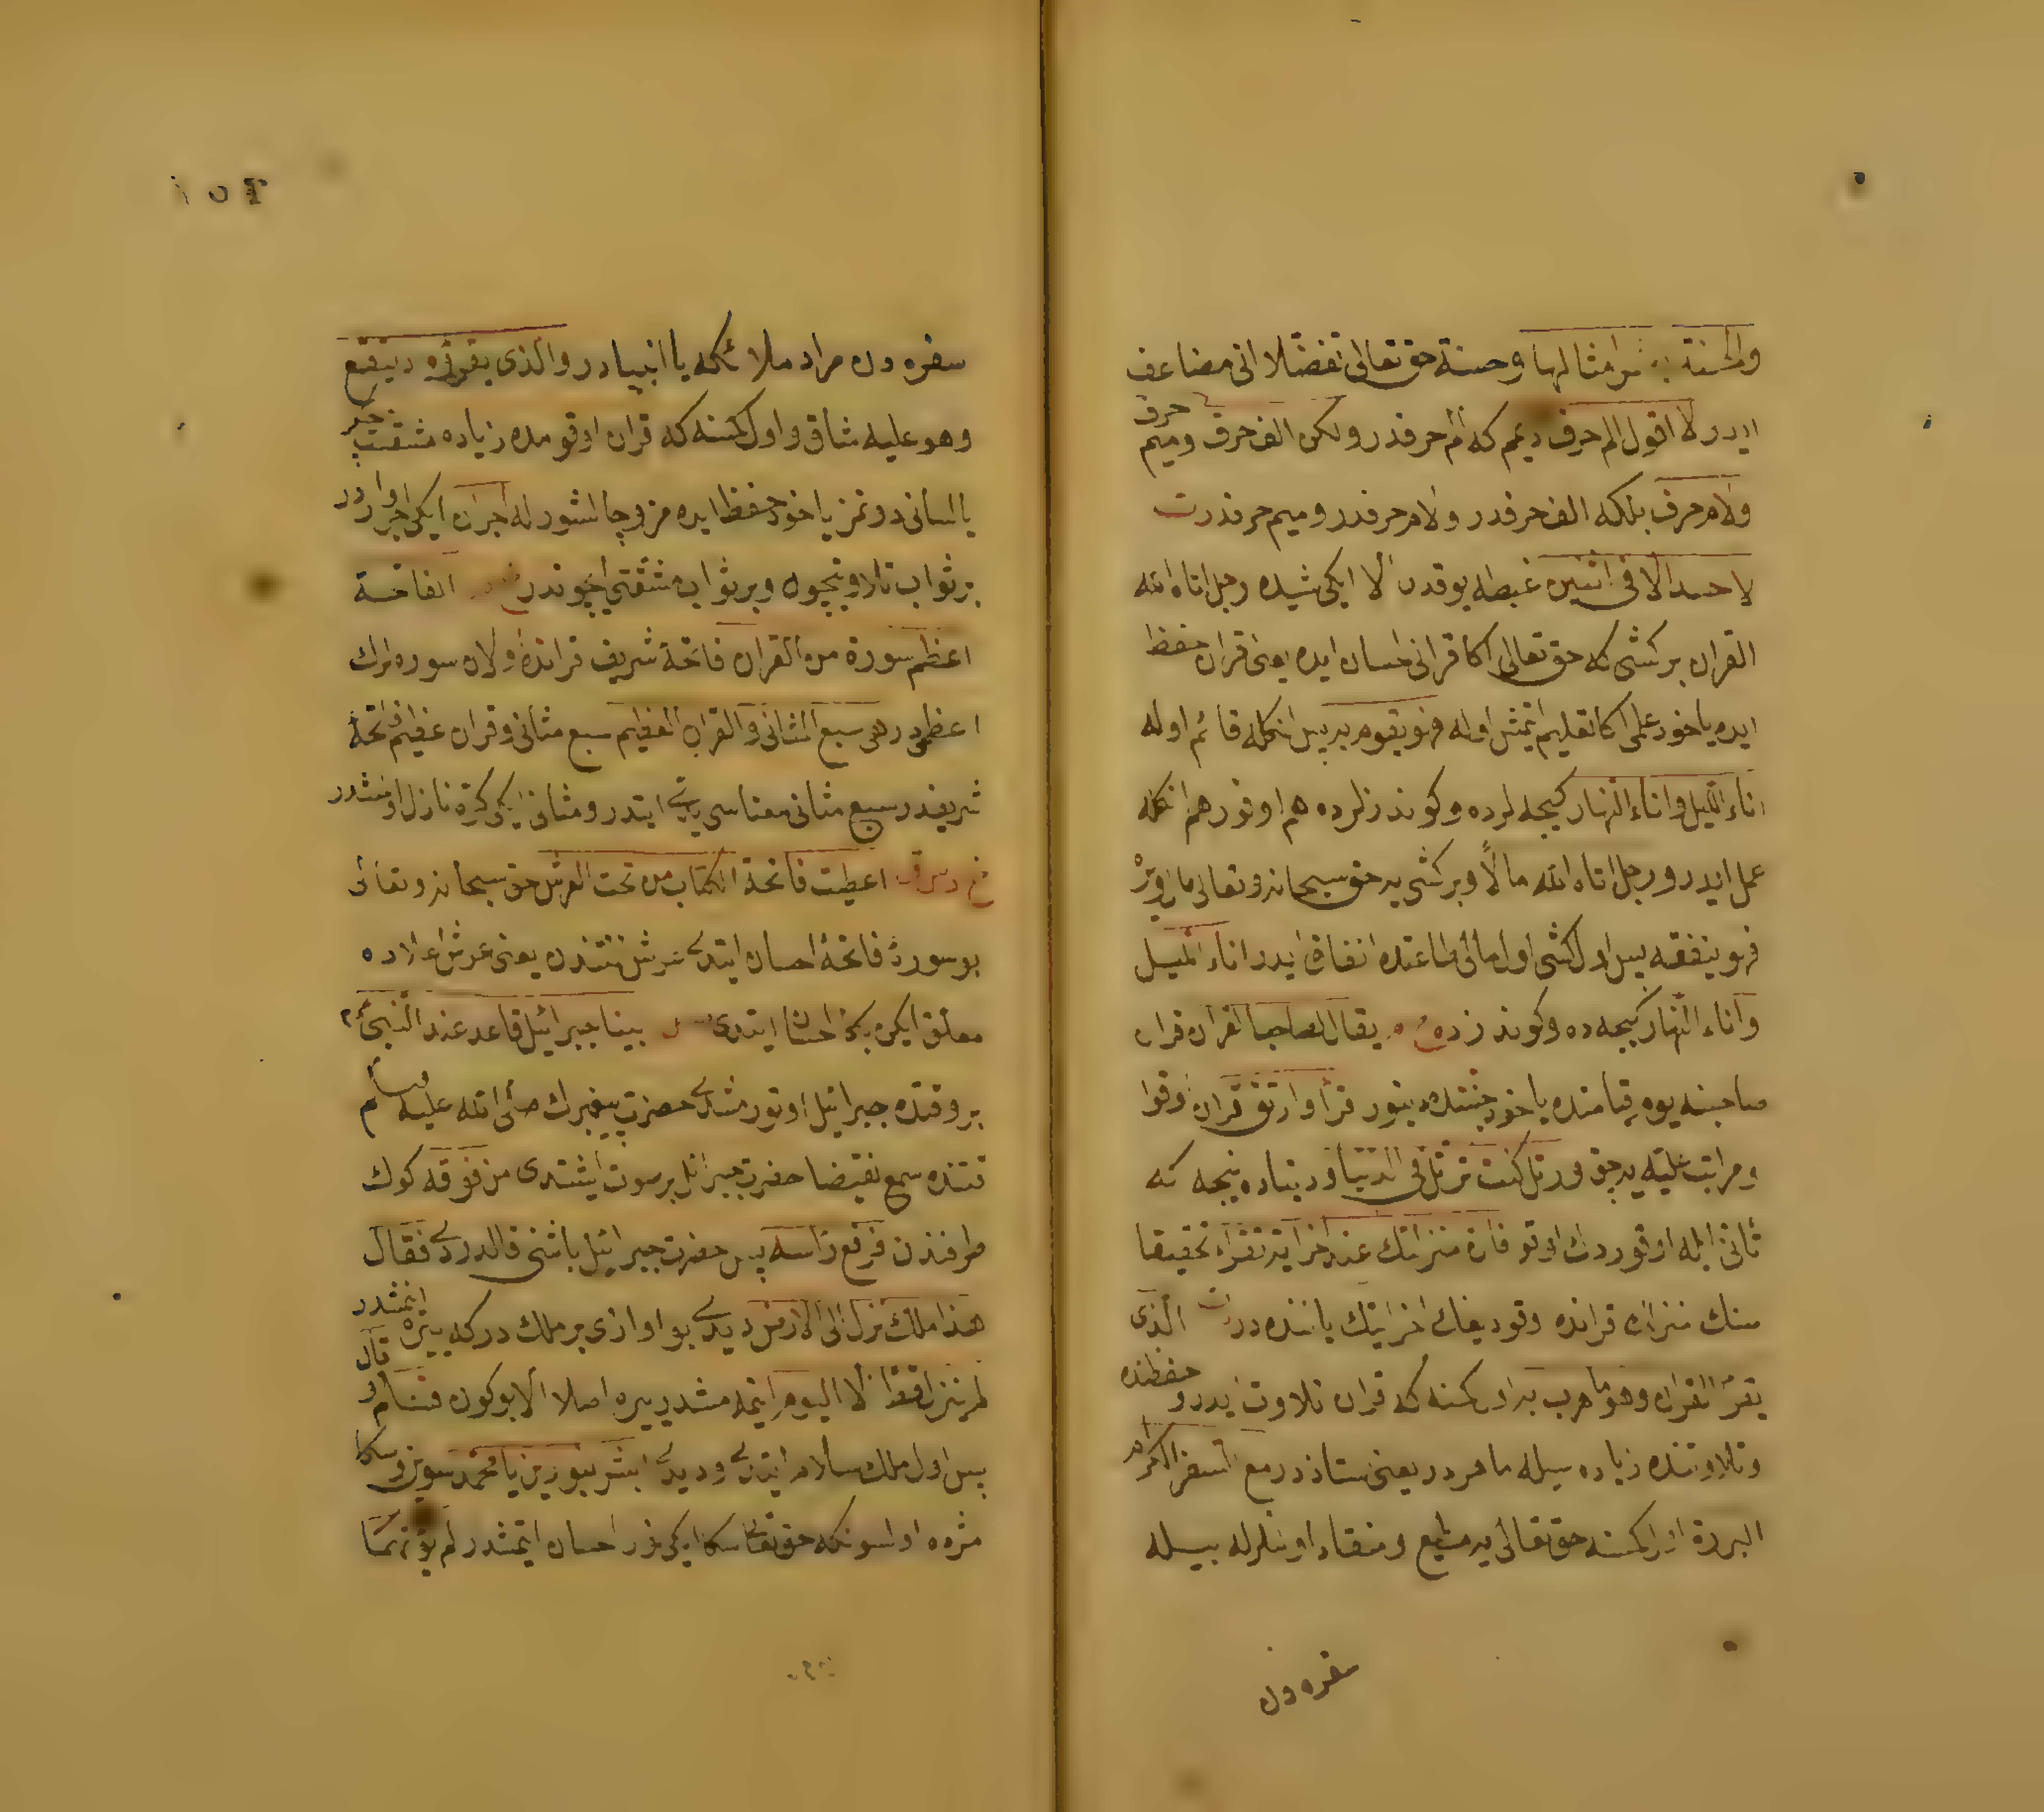 والحسنة بعشر امثالها وحسنة حق تعالى تفضلا انى مضاعف
ايدر لا اقول الم حرف ديمم كه الم حرفدر ولكن الف حرف وميم حرف
ولام حرف بلكه الف حرفدر ولام حرفدر وميم حرفدر ت
لا حسد الا فى اثنين غبطه يوقدر الا ايكى شيده رجل اتاه الله
القران بر كشى كه حق تعالى اكا قرانى احسان ايده يعنى قران حفظ
ايده ياخود علمى اكا تعليم ايتمش اوله فهو يقوم به پس انكله قائم اوله
اناء الليل واناء النهار كيجه لرده وكوندزلرده هم اوقور هم انكله
عمل ايدر ورجل اتاه الله مالا وبر كشى يه حق سبحانه وتعالى مال ويره
فهو ينفقه پس اول كشى اول مالى طاعتده انفاق ايدر اناء الليل
واناء النهار كيجه ده وكوندزده يقال لصاحب القران قران
صاحبنه يوم قيامتده ياخود جنتده دينور اقرأ وارتق قران اوقو
ومراتب عليه يه چق ورتل كما كنت ترتل فى الدنيا ودنياده نيجه كه
تانى ايله اوقوردك اوقو فان منزلتك عند اخر اية تقرأ تحقيقا
سنك منزلك قرانده اوقوديغك اخر ايتك ياننده در الذى
يقرأ القران وهو ماهر به اول كمسنه كه قران تلاوت ايدر وحفظنده
وتلاوتنده زياده سيله ماهردر يعنى استاذدر مع السفرة الكرام
البررة اول كمسنه حق تعالى يه مطيع ومنقاد اولنلرله بيله
سفره دن
سفره دن مراد ملائكه يا انبيادر والذى يقرؤه ويتتعتع
وهو عليه شاق واول كمسنه كه قران اوقومده زياده مشقت چكر
يا لسانى دونمز ياخود حفظ ايده مز وچالشور له اجران ايكى اجر واردر
بر ثواب تلاوتيچون وبر ثواب مشقتى ايچوندر الفاتحة
اعظم سورة من القران فاتحۀ شريف قرانده اولان سوره لرك
اعظمى در هى سبع المثانى والقران العظيم سبع مثانى وقران عظيم فاتحۀ
شريفدر سبع مثانى معناسى يدى ايتدر ومثانى ايكى كره نازل اولمشدر
اعطيت فاتحة الكتاب من تحت العرش حق سبحانه وتعالى
بو سورۀ فاتحۀ احسان ايتدى عرش تحتندن يعنى عرش اعلاده
معلق ايكن بكا احسان ايتدى بينا جبرائيل قاعد عند النبى
بر وقتده جبرائيل اوتورمشدى حضرت پيغمبرك صلى الله عليه وسلم
قتنده سمع نقيضا حضرت جبرائيل بر صوت ايشتدى من فوقه كوك
طرفندن فرفع رأسه پس حضرت جبرائيل باشنى قالدردى فقال
هذا ملك نزل الى الارض ديدى بو اوازى بر ملك در كه ييره اينمشدر
لم ينزل قط الا اليوم اينمه مشدر ييره اصلا الا بو كون فسلم وقال
پس اول ملك سلام ايتدى وديدى ابشر بنورين يا محمد سوين وسكا
مژده اولسونكه حق تعالى سكا ايكى نور احسان ايتمشدر لم يؤتهما